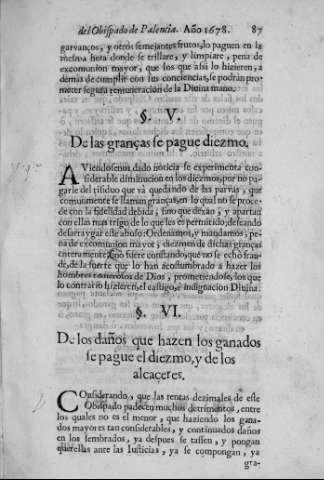 del Obispado de Palencia. Año 1678. 87
garvanços, y otros semejantes frutos, lo paguen en la
mesma hera donde se trillare, y limpiare, pena de
excomunion mayor, que los que assi lo hizieren, a
demàs de cumplir con sus conciencias, se podràn pro-
meter segura remuneracion de la Divina mano.
§. V.
De las granças se pague diezmo.
AViendosenos dado noticia se experimenta con-
siderable diminucion en los diezmos, por no pa-
garle del residuo que và quedando de las parvas, que
comunmente se llaman granças, en lo qual no se proce-
de con la fidelidad debida, sino que dexan, y apartan
con ellas mas trigo de lo que les es permitido, deseando
desarraygar este abuso: Ordenamos, y mandamos, pe-
na de excomunion mayor, diezmen de dichas granças
enteramente, sino fuere constando, que no se echò frau-
de, de la suerte que lo han acostumbrado a hazer los
hombres temerosos de Dios, prometiendose, los que
lo contrario hizieren, el castigo, è indignacion Divina.
§. VI.
De los daños que hazen los ganados
se pague el diezmo, y de los
alcaçeres.
COnsiderando, que las rentas dezimales de este
Obispado padecen muchos detrimentos, entre
los quales no es el menor, que haziendo los gana-
dos mayores tan considerables, y continuados daños
en los sembrados, ya despues se tassen, y pongan
querellas ante las Iusticias, ya se compongan, ya
gra-